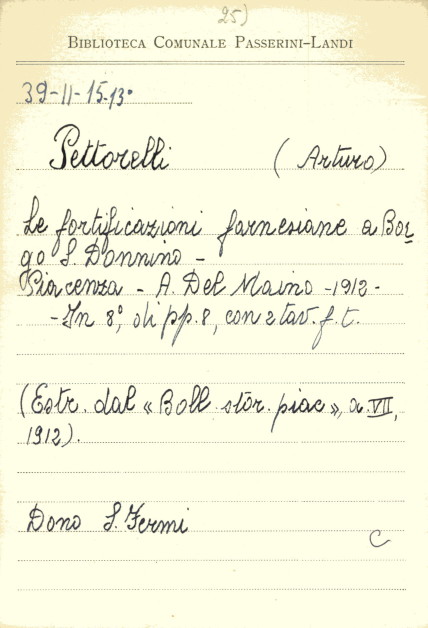 25)
BIBLIOTECA COMUNALE PASSERINI-LANDI
39-II-15.13°
Pettorelli (Arturo)
Le fortificazioni farnesiane a Bor
go S. Donnino -
Piacenza - A. Del Maino - 1912 -
- In 8°, di pp. 8, con 2 tav. f. t.
(Estr. dal « Boll. stor. piac », a. VII,
1912).
Dono S. Fermi
C